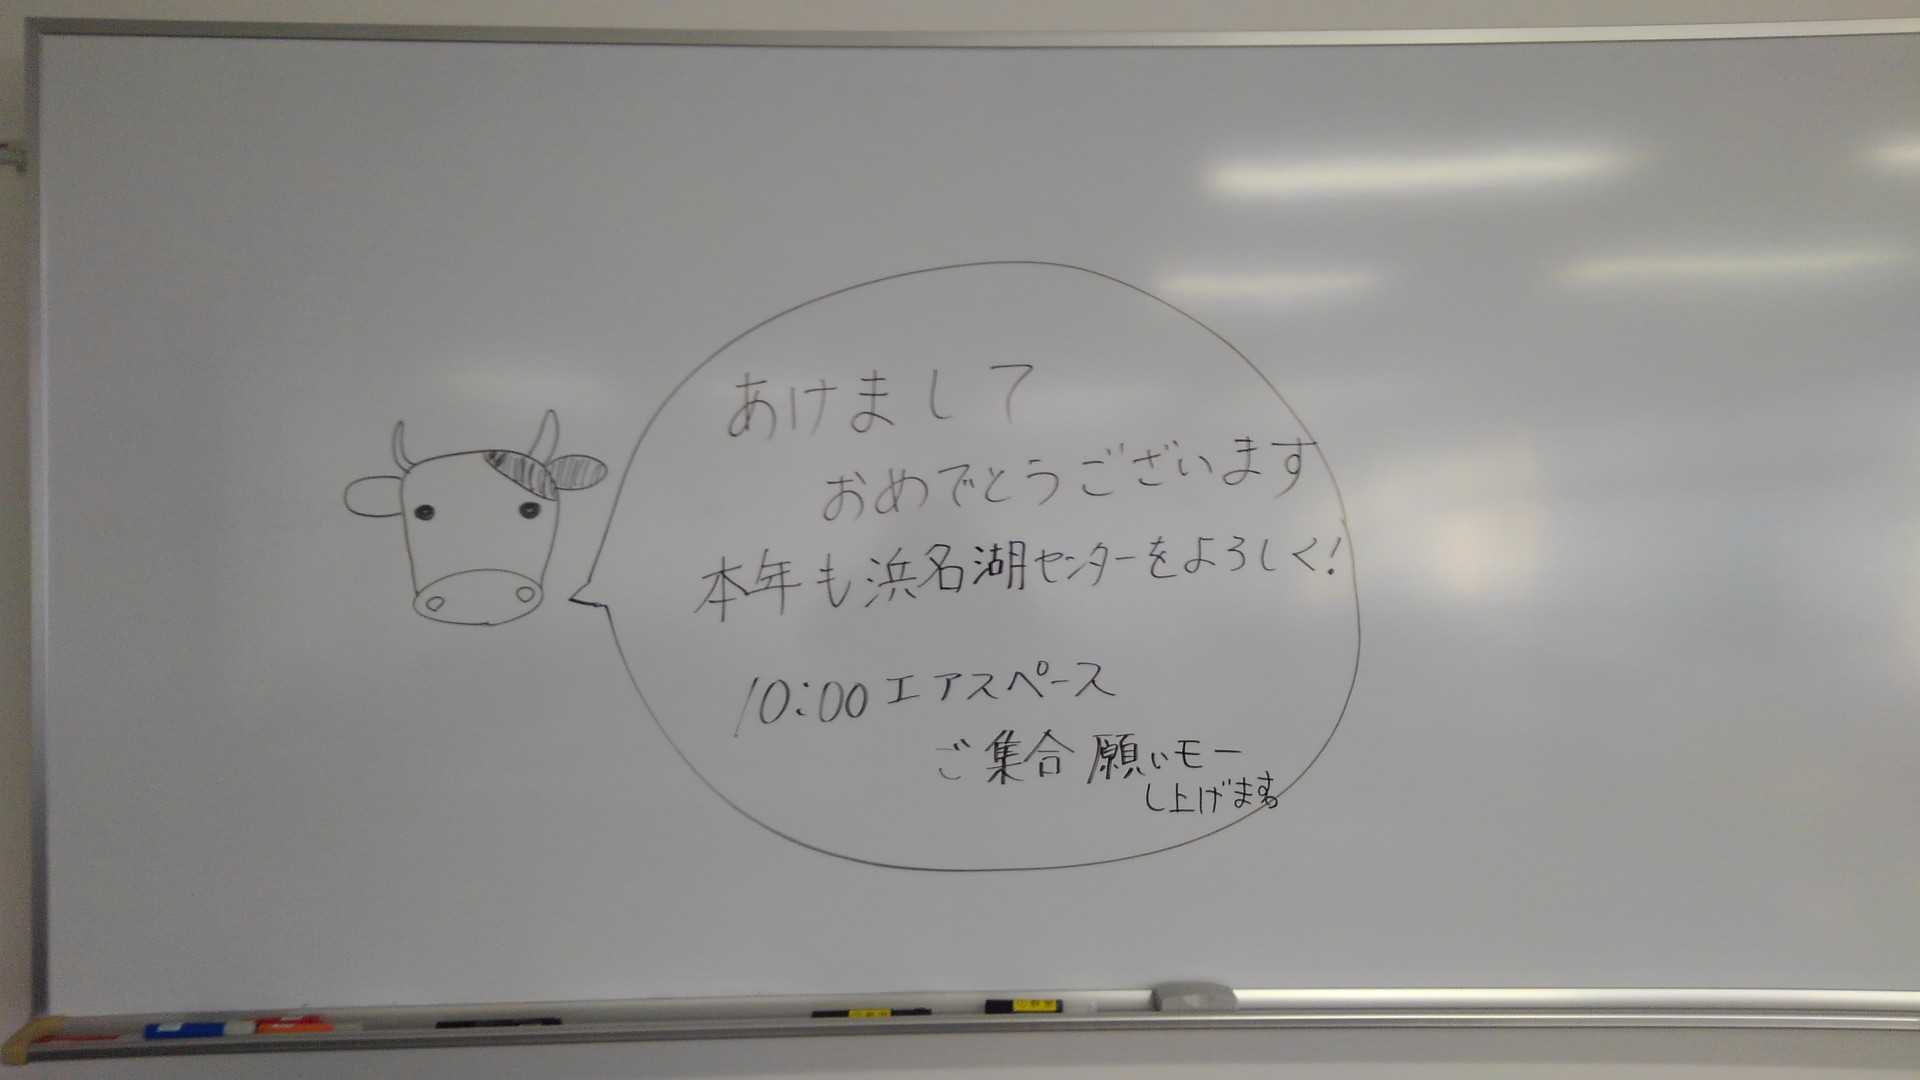 あけまして
おめでとうございます
本年も浜名湖センターをよろしく!
10:00 エアスペース
ご集合願いモー
し上げます